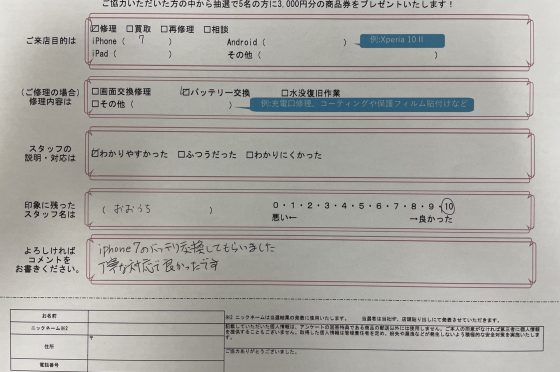 ご協力いただいた方の中から抽選で5名の方に3,000円分の商品券をプレゼントいたします！
ご来店目的は
☑修理 □買取 □再修理 □相談
iPhone（ 7 ） Android（ ） 例:Xperia 10 II
iPad（ ） その他（ ）
(ご修理の場合)
修理内容は
□画面交換修理 ☑バッテリー交換 □水没復旧作業
□その他（ ） 例:充電口修理、コーティングや保護フィルム貼付けなど
スタッフの
説明・対応は
☑わかりやすかった □ふつうだった □わかりにくかった
印象に残った
スタッフ名は
（ おおうち ）
0・1・2・3・4・5・6・7・8・9・10
悪い← →良かった
よろしければ
コメントを
お書きください。
iphone7のバッテリ交換してもらいました
丁寧な対応で良かったです
お名前
ニックネーム※2
住所
〒
電話番号
※2 ニックネームは当選結果の発表に使用いたします。 当選者は当社HP、店頭貼り出しにて発表させていただきます。
ご協力ありがとうございました。